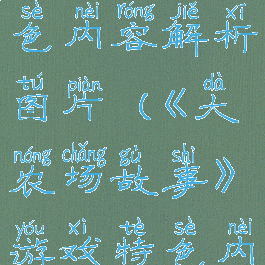 sè nèi róng jiě xī
色内容解析
tú piàn dà
图片(《大
nóng chǎng gù shì
农场故事》
yóu xì tè sè nèi
游戏特色内